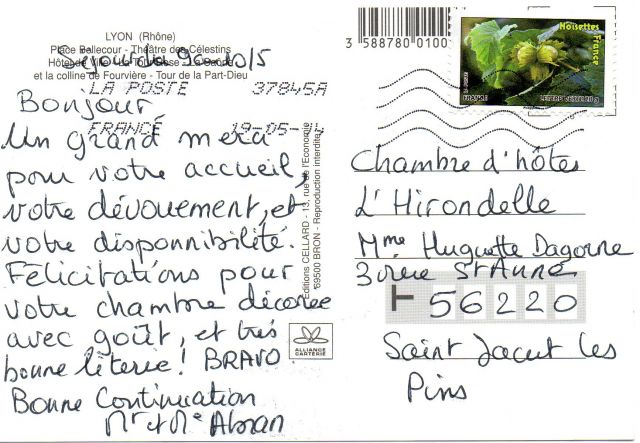 LYON (Rhône)
Place Bellecour - Théâtre des Célestins
Hôtel de Ville - La Saône
et la colline de Fourvière - Tour de la Part-Dieu
LA POSTE 37845A
FRANCE 19-05-
Bonjour
Un grand merci
pour votre accueil,
votre dévouement, et
votre disponnibilité.
Félicitations pour
votre chambre décorée
avec goût, et très
bonne literie! BRAVO
Bonne Continuation
Mr et Me
Editions CELLARD - 13, rue de l'Economie
69500 BRON - Reproduction interdite
ALLIANCE
CARTERIE
3 588780 0100
Noisettes
France
LA POSTE
FRANCE
LETTRE VERTE 20 g
Chambre d'hôtes
L'Hirondelle
Mme Huguette Dagorne
3 rue St Anne
56220
Saint Jacut les
Pins